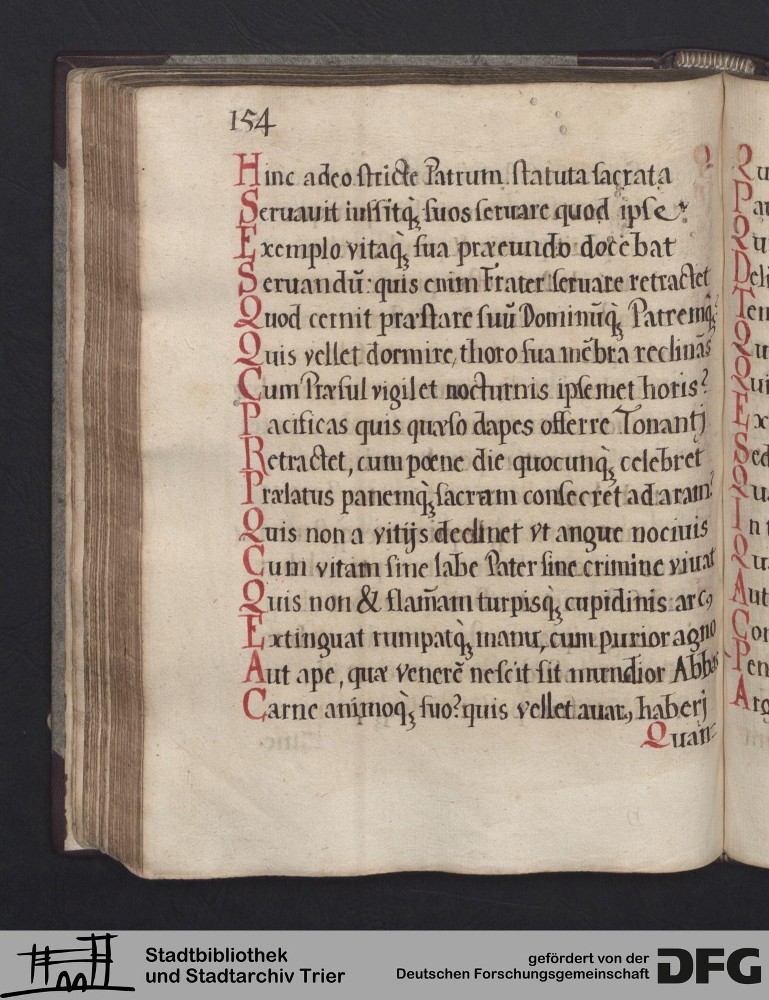 154
Hinc adeo stricte Patrum statuta sacrata
Seruauit iussitq; suos seruare quod ipse
Exemplo vitaq; sua præeundo docebat
Seruandū: quis enim Frater seruare retractet
Quod cernit præstare suū Dominūq; Patremq;?
Quis vellet dormire, thoro sua mēbra reclinās
Cum Præsul vigilet nocturnis ipsemet horis?
Pacificas quis quæso dapes offerre Tonantj
Retractet, cum pœne die quocunq; celebret
Prælatus panemq; sacrum consecret ad aram?
Quis non a vitijs declinet vt angue nociuis
Cum vitam sine labe Pater sine crimine viuat
Quis non & flam̄am turpisq; cupidinis arc9
Extinguat rumpatq; manu, cum purior agno
Aut ape, quæ venerē nescit sit mundior Abbas
Carne animoq; suo? quis vellet auar9 haberj
Quan-
Qu
Pa
Qu
Deli
Tem
Qu
Qui
Ex
Sed
Qu
In
Qu
Aut
Con
Pen
Arg
Stadtbibliothek
und Stadtarchiv Trier
gefördert von der
Deutschen Forschungsgemeinschaft
DFG